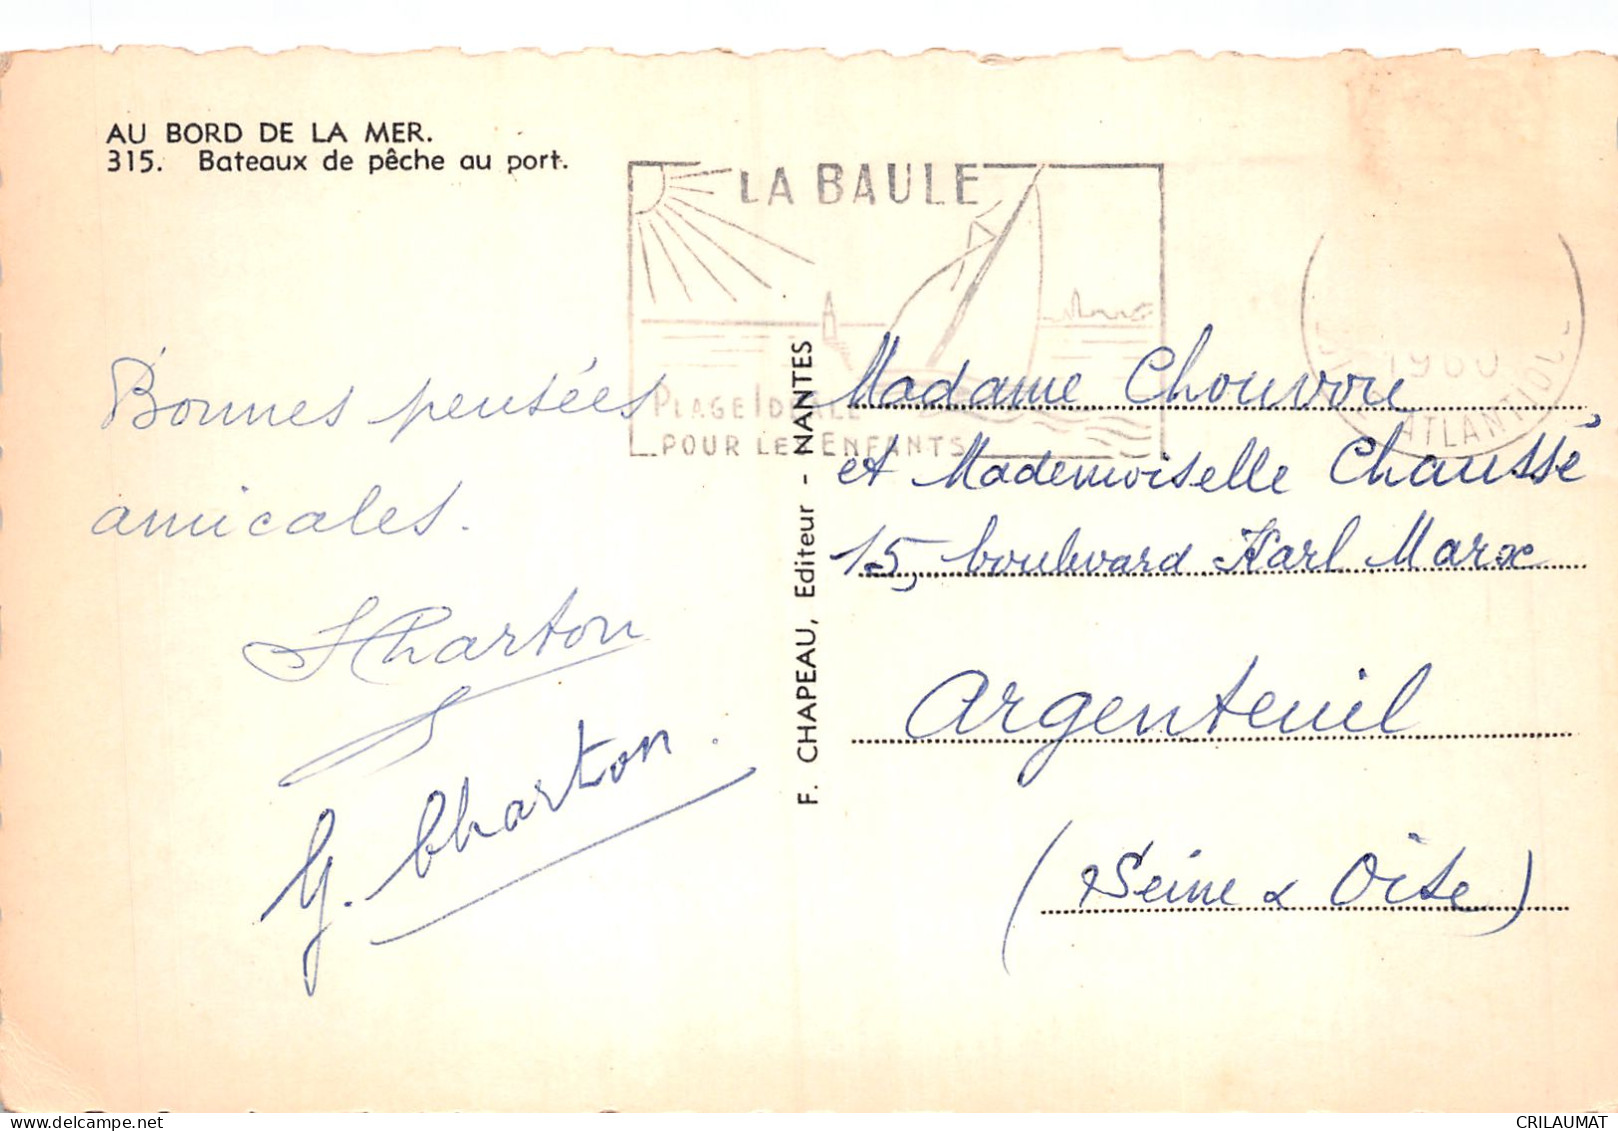 AU BORD DE LA MER.
315. Bateaux de pêche au port.
LA BAULE
PLAGE IDEALE
POUR LES ENFANTS
1960
ATLANTIQUE
Bonnes pensées
amicales.
Charton
G. Charton.
F. CHAPEAU, Editeur - NANTES
Madame Chouvou
et Mademoiselle Chaussé
15, boulevard Karl Marx
Argenteuil
(Seine & Oise)
CRILAUMAT